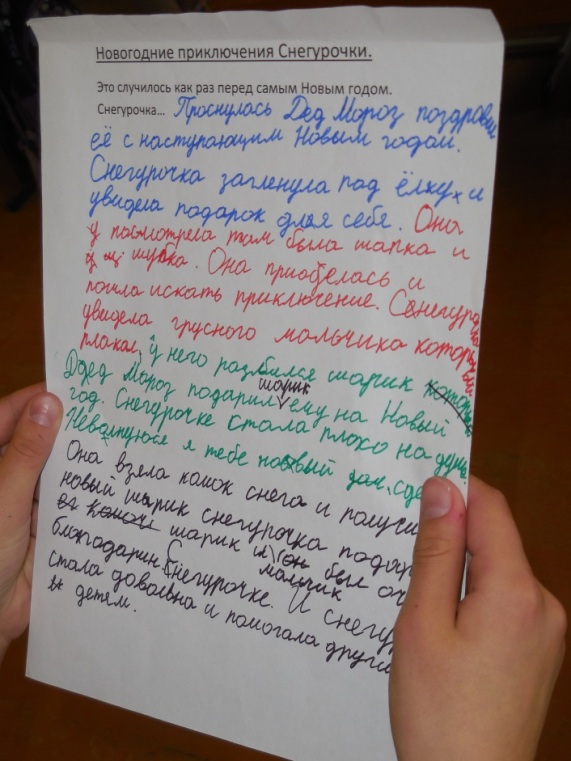 Новогодние приключения Снегурочки.
Это случилось как раз перед самым Новым годом.
Снегурочка... Проснулась Дед Мороз поздровил
её с наступающим Новым годом.
Снегурочка загленула под ёлку и
увидела подарок для себя. Она
посмотрела там была шапка и
шубка. Она приоделась и
пошла искать приключение. Снегурочка
увидела грусного мальчика который
плакал, у него разбился шарик
Дед Мороз подарил шарик ему на Новый
год. Снегурочке стала плохо на душе.
Неволнуюся я тебе новый
Она взяла комок снега и получи
новый шарик снегурочка подар
шарик и мальчик был оч
благодарин Снегурочке. И снегур
стала довольна и помогала други
детям.